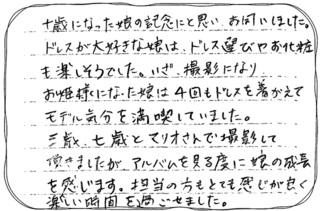 十歳になった娘の記念にと思い、お伺いしました。
ドレスが大好きな娘は、ドレス選びやお化粧
も楽しそうでした。いざ、撮影になり
お姫様になった娘は4回もドレスを着がえて
モデル気分を満喫していました。
三歳、七歳とマリオさんで撮影して
頂きましたが、アルバムを見る度に娘の成長
を感じます。担当の方もとても感じが良く
楽しい時間を過ごせました。